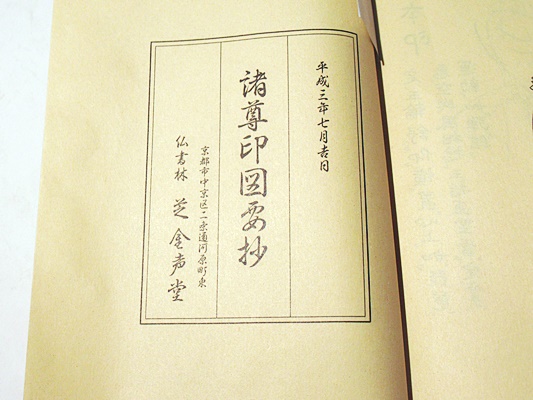 平成三年七月吉日
諸尊印図要抄
京都市中京区二条通河原町東
仏書林 芝金声堂